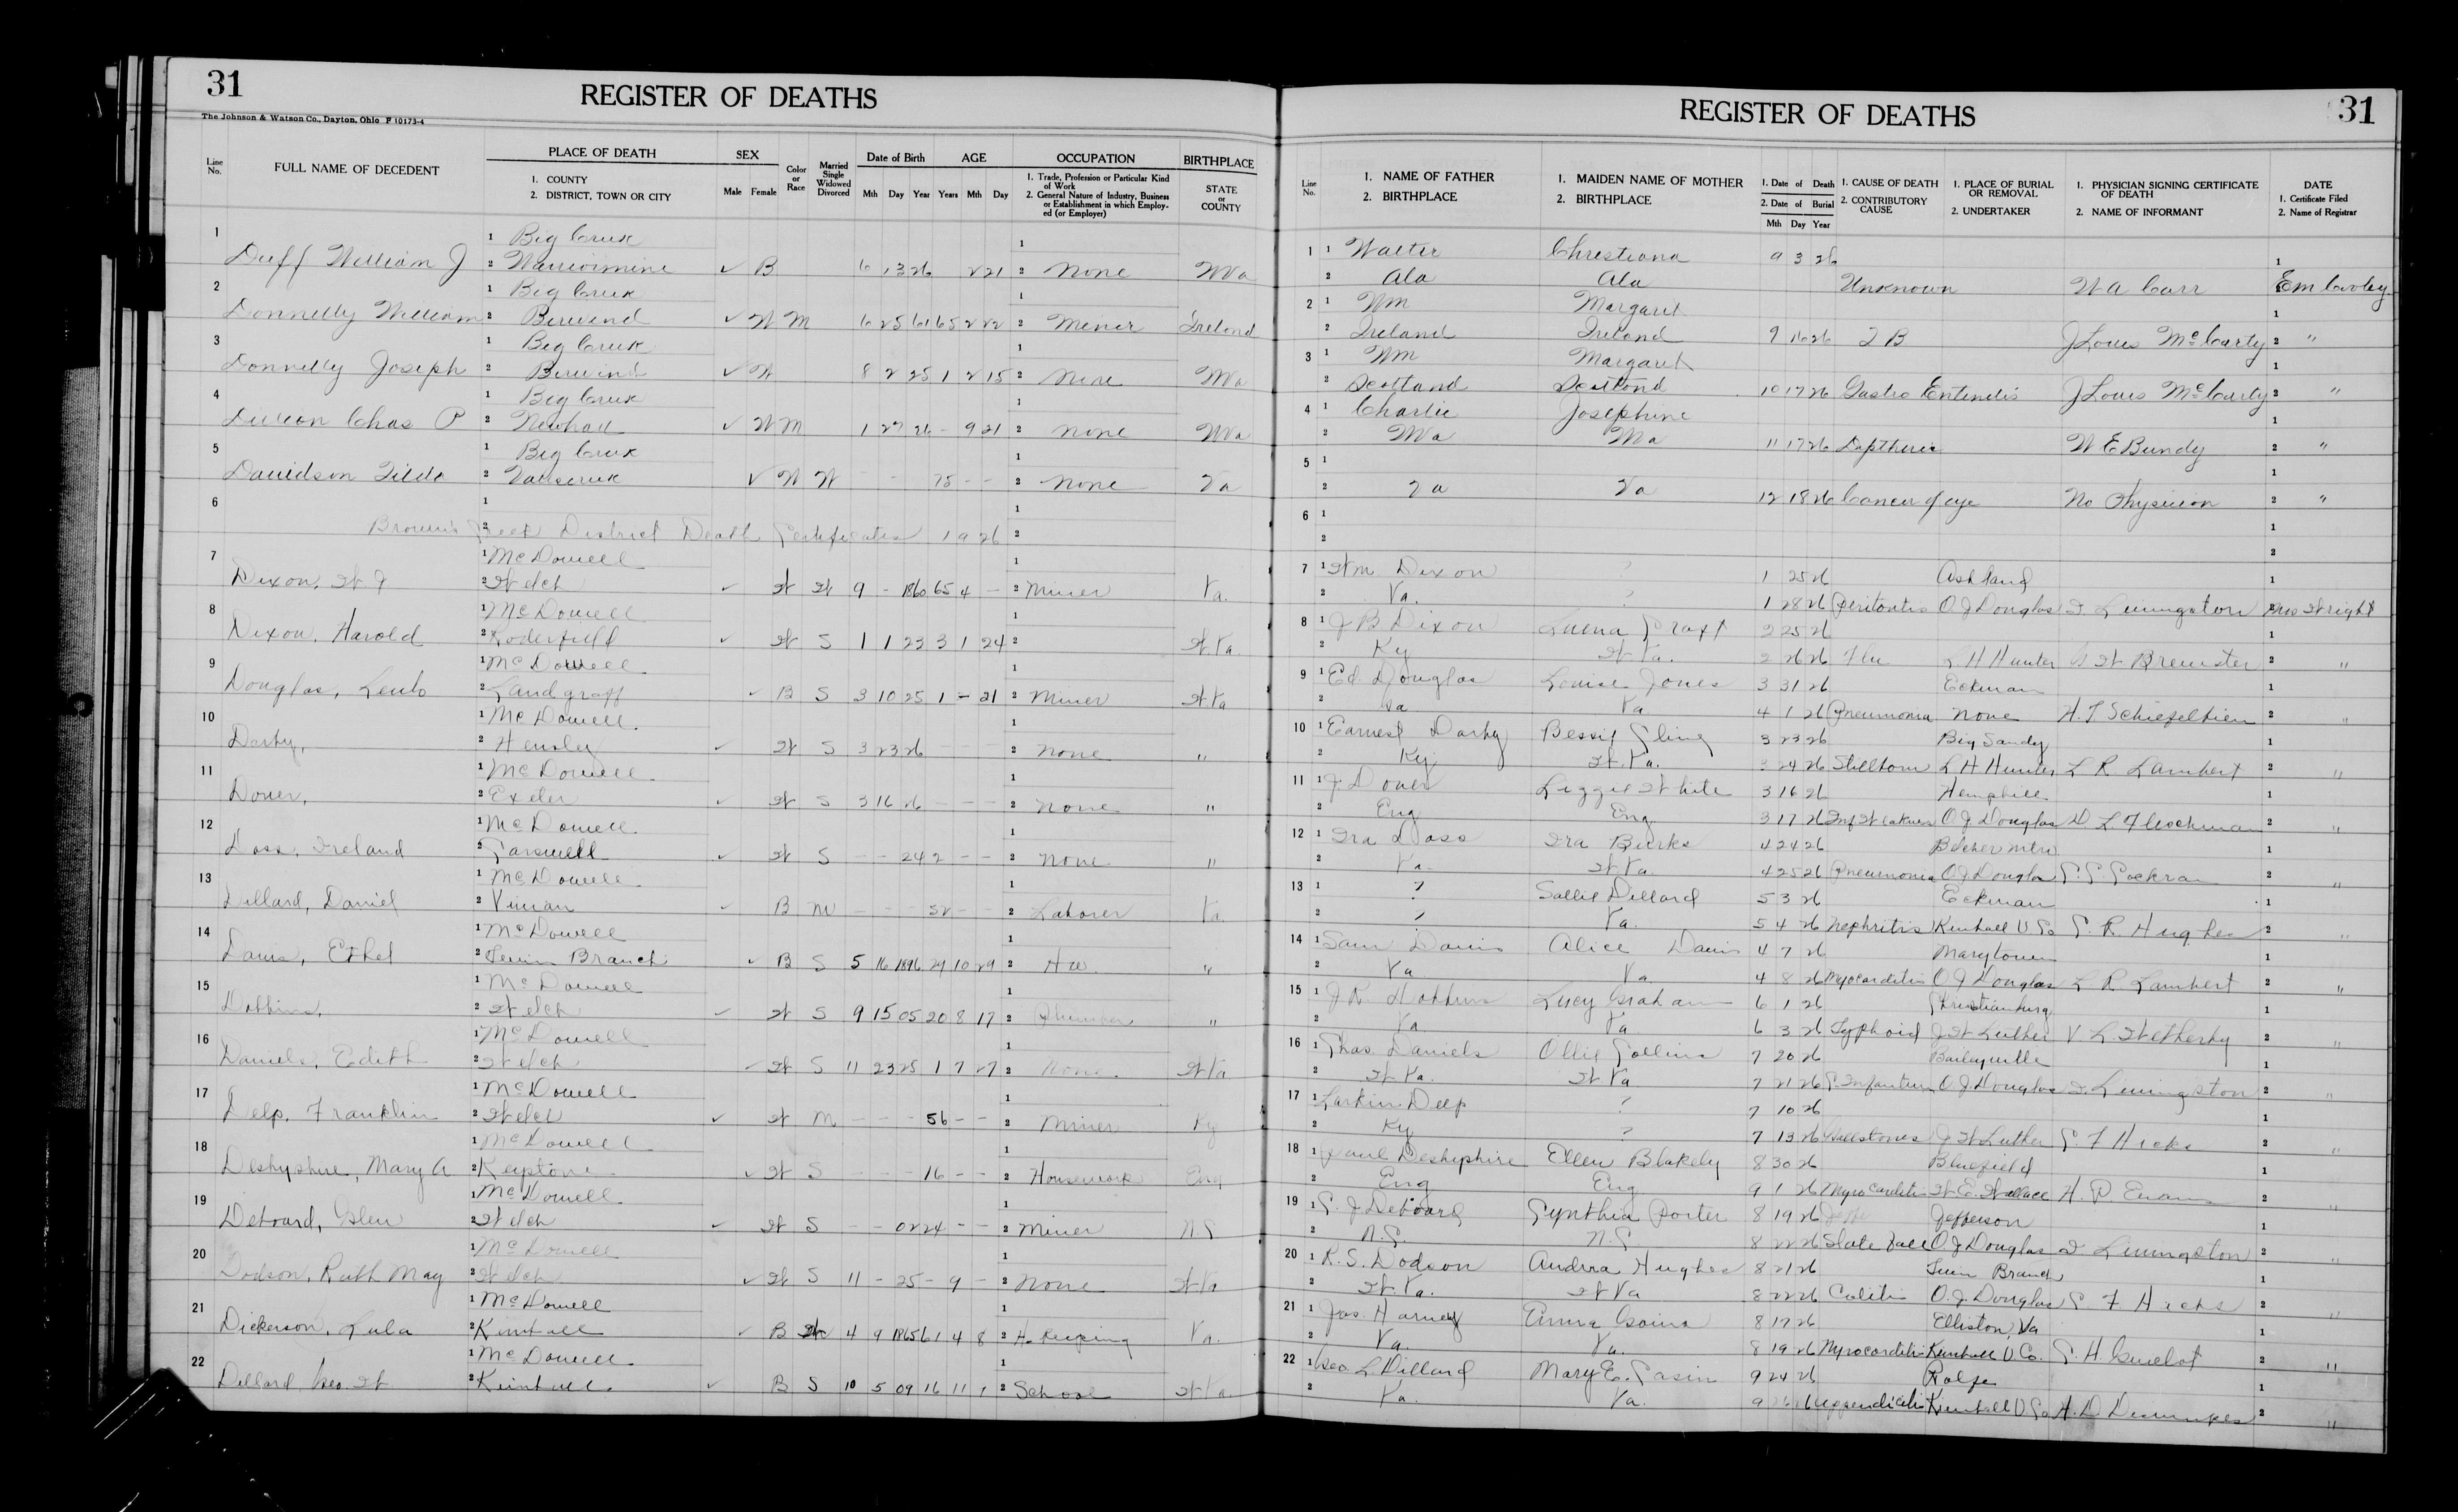 31
REGISTER OF DEATHS
The Johnson & Watson Co., Dayton, Ohio F 10173-4
Line No. FULL NAME OF DECEDENT PLACE OF DEATH 1. COUNTY 2. DISTRICT, TOWN OR CITY SEX Male Female Color or Race Married Single Widowed Divorced Date of Birth Mth Day Year AGE Years Mth Day OCCUPATION 1. Trade, Profession or Particular Kind of Work 2. General Nature of Industry, Business or Establishment in which Employed (or Employer) BIRTHPLACE STATE or COUNTY
1 1 Big Creek 1
Duff William J 2 Warriormine ✓ B 6 13 26 2 21 2 None WVa
2 1 Big Creek 1
Donnelly William 2 Berwind ✓ W M 6 25 61 65 2 22 2 Miner Ireland
3 1 Big Creek 1
Donnelly Joseph 2 Berwind ✓ W 8 2 25 1 2 15 2 None WVa
4 1 Big Creek 1
Chas P 2 Newhall ✓ W M 1 27 26 - 9 21 2 None WVa
5 1 Big Creek 1
Davidson Tilda 2 ✓ W W - - 75 - - 2 None Va
6 1 1
Brown's Creek District Death Certificates 1926 2
7 1 McDowell 1
Dixon, W. J 2 Welch ✓ W W 9 - 1860 65 4 - 2 Miner Va.
8 1 McDowell
Dixon, Harold 2 Roderfield ✓ W S 1 1 23 3 1 24 2 W.Va.
9 1 McDowell 1
Douglas, 2 Landgraff ✓ B S 3 10 25 1 - 21 2 Miner W.Va
10 1 McDowell. 1
Darby, 2 Hensley ✓ W S 3 23 26 - - - 2 None "
11 1 McDowell 1
Dover, 2 Exeter ✓ W S 3 16 26 - - - 2 None "
12 1 McDowell 1
Doss, Ireland 2 Carswell ✓ W S - - 24 2 - - 2 None "
13 1 McDowell 1
Dillard, Daniel 2 Vivian ✓ B M - - - 52 - - 2 Laborer Va.
14 1 McDowell 1
Davis, Ethel 2 Twin Branch ✓ B S 5 16 1896 29 10 29 2 H w. "
15 1 McDowell 1
Dobbins, 2 Welch ✓ W S 9 15 05 20 8 17 2 Plumber "
16 1 McDowell 1
Daniels, Edith 2 Welch ✓ W S 11 23 25 1 7 27 2 None. W Va
17 1 McDowell 1
Delp, Franklin 2 Welch ✓ W M - - - 56 - - 2 Miner Ky
18 1 McDowell 1
Deshyshire, Mary A 2 Keystone ✓ W S - - - 16 - - 2 Housework Eng
19 1 McDowell 1
Deboard, Glen 2 Welch ✓ W S - - 02 24 - - 2 Miner N.C.
20 1 McDowell 1
Dodson, Ruth May 2 Welch ✓ W S 11 - 25 - 9 - 2 None W Va
21 1 McDowell 1
Dickerson, Lula 2 Kimball ✓ B W 4 9 1865 61 4 8 2 H. Keeping Va.
22 1 McDowell 1
Dillard, Geo. W. 2 Kimball. ✓ B S 10 5 09 16 11 1 2 School W Va
REGISTER OF DEATHS
31
Line No. 1. NAME OF FATHER 2. BIRTHPLACE 1. MAIDEN NAME OF MOTHER 2. BIRTHPLACE 1. Date of Death 2. Date of Burial Mth Day Year 1. CAUSE OF DEATH 2. CONTRIBUTORY CAUSE 1. PLACE OF BURIAL OR REMOVAL 2. UNDERTAKER 1. PHYSICIAN SIGNING CERTIFICATE OF DEATH 2. NAME OF INFORMANT DATE 1. Certificate Filed 2. Name of Registrar
1 1 Walter Christiana 9 3 26 1
2 Ala Ala Unknown W A Carr
2 1 Wm Margaret 1
2 Ireland Ireland 9 16 26 T B J Louis McCarty 2 "
3 1 Wm Margaret 1
2 Scotland Scotland 10 17 26 Gastro J Louis McCarty 2 "
4 1 Charlie Josephine 1
2 WVa 11 17 26 W E Bundy 2 "
5 1 1
2 Va Va 12 18 26 Cancer of eye No Physician 2 "
6 1 1
2 2
7 1 Wm Dixon ? 1 25 26 Ashland 1
2 Va. ? 1 28 26 O J Douglas Livingston Wright
8 1 J B Dixon 2 25 26 1
2 Ky W.Va. 2 26 26 Flu L H Hunter G W Brewster 2 "
9 1 Ed. Douglas Louise Jones 3 31 26 Eckman 1
2 Va Va. 4 1 26 Pneumonia None 2 "
10 1 Earnest Darby Bessie Cline 3 23 26 Big Sandy 1
2 Ky W.Va. 3 24 26 Stillborn L H Hunter L R Lambert 2 "
11 1 J. Dover Lizzie White 3 16 26 Hemphill 1
2 Eng Eng. 3 17 26 O J Douglas 2 "
12 1 Ira Doss Ira Burks 4 24 26 1
2 Va. W Va. 4 25 26 Pneumonia O J Douglas 2 "
13 1 ? Sallie Dillard 5 3 26 Eckman 1
2 ? Va. 5 4 26 Nephritis Kimball U Co C. R. Hughes 2 "
14 1 Sam Davis Alice Davis 4 7 26 Marytown 1
2 Va. Va 4 8 26 Myocarditis O J Douglas L R Lambert 2 "
15 1 J. R. Dobbins Lucy Graham 6 1 26 Christianburg 1
2 Va Va. 6 3 26 Typhoid J W Luther 2 "
16 1 Chas. Daniels Ollie Collins 7 20 26 Baileyville 1
2 W.Va. W Va 7 21 26 C. Infantum O J Douglas Livingston 2 "
17 1 Larkin Delp ? 7 10 26 1
2 Ky ? 7 13 26 Gallstones J W Luther C F Hicks 2 "
18 1 Paul Deshyshire Ellen Blakely 8 30 26 Bluefield 1
2 Eng Eng. 9 1 26 Myocarditis W. E. Wallace H. P Evans 2 "
19 1 C. J Deboard Cynthia Porter 8 19 26 Jefferson 1
2 N.C. N.C. 8 22 26 Slate fall O J Douglas Livingston 2 "
20 1 R. S. Dodson Audrea Hughes 8 21 26 Twin Branch 1
2 W.Va. W Va 8 22 26 Colitis O. J. Douglas C. F Hicks 2 "
21 1 Jas. Harvey 8 17 26 Elliston, Va 1
2 Va. Va. 8 19 26 Myocarditis Kimball U Co. 2 "
22 1 Geo. L. Dillard Mary E. 9 24 26 Rolfe 1
2 Va. Va. 9 26 26 Appendicitis Kimball U Co 2 "